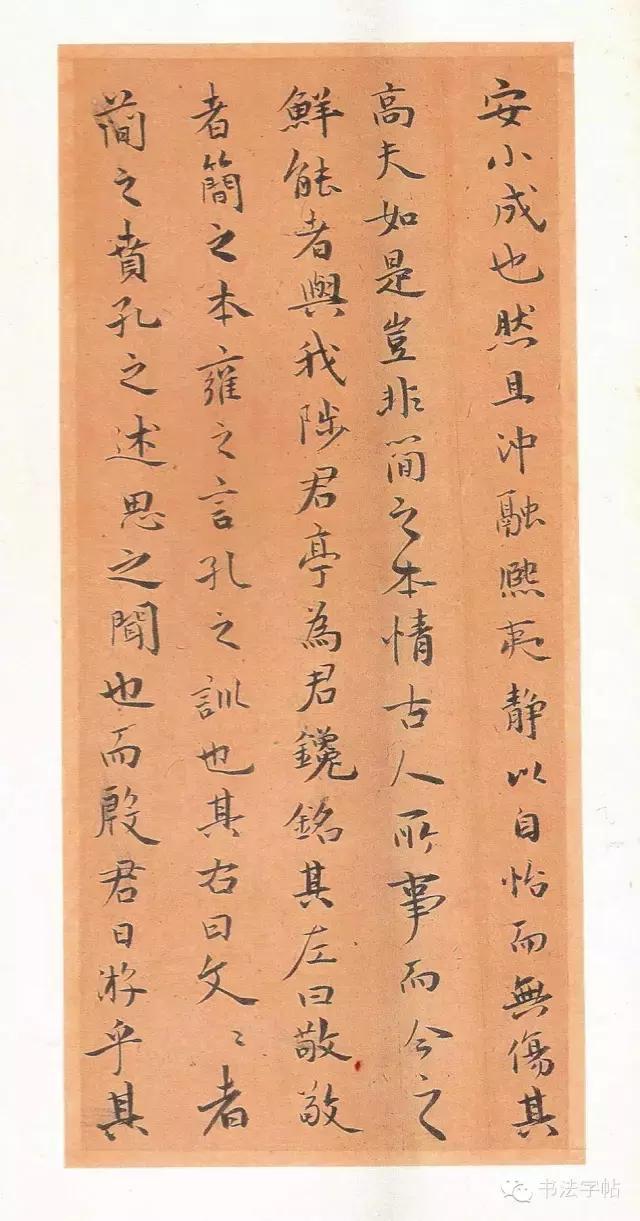 安小成也然且沖融熙夷靜以自怡而無傷其
高夫如是豈非簡之本情古人所事而今之
鮮能者與我陟君亭為君鑱銘其左曰敬敬
者簡之本雍之言孔之訓也其右曰文〻者
簡之賁孔之述思之聞也而殷君日游乎其
书法字帖